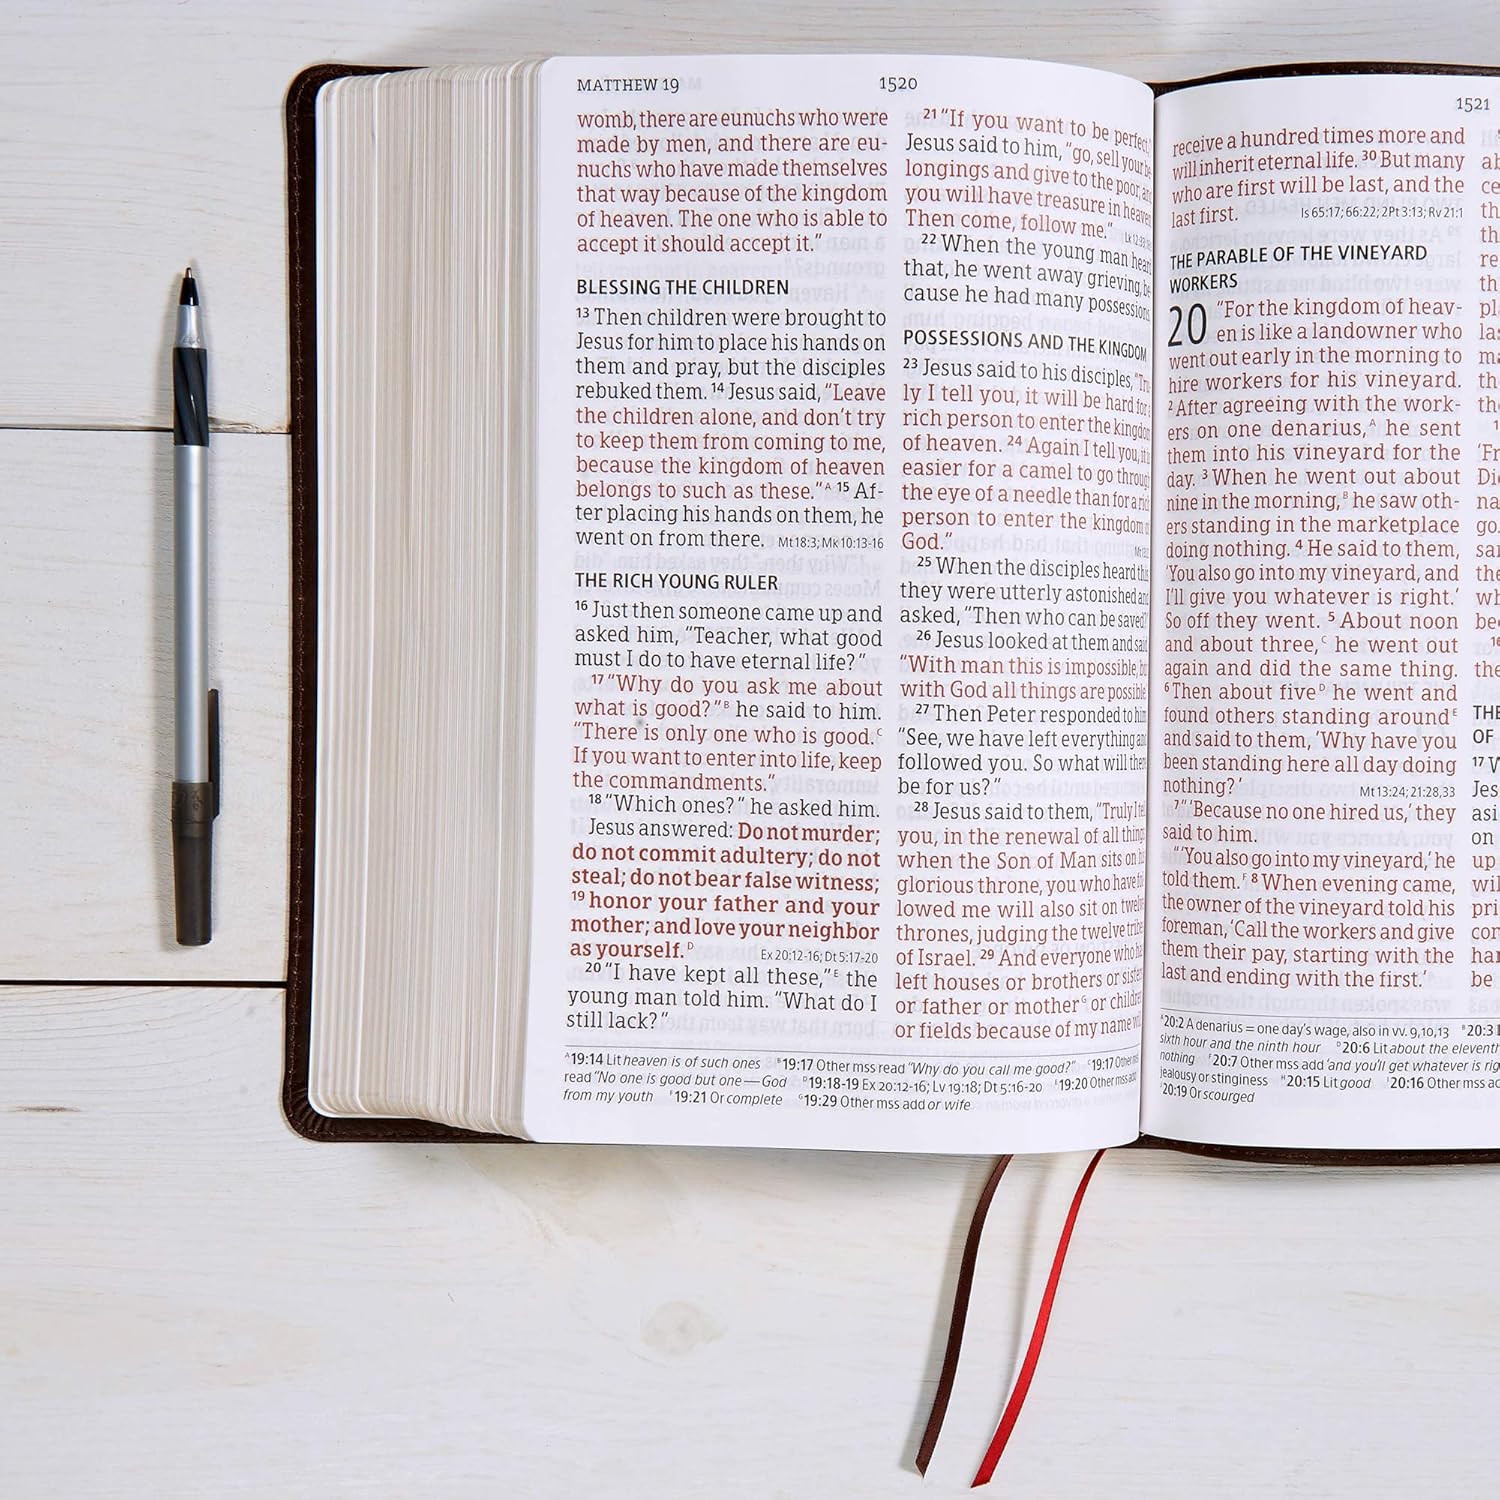 MATTHEW 19
1520
womb, there are eunuchs who were
made by men, and there are eu-
nuchs who have made themselves
that way because of the kingdom
of heaven. The one who is able to
accept it should accept it."
BLESSING THE CHILDREN
13 Then children were brought to
Jesus for him to place his hands on
them and pray, but the disciples
rebuked them. 14 Jesus said, "Leave
the children alone, and don't try
to keep them from coming to me,
because the kingdom of heaven
belongs to such as these."A 15 Af-
ter placing his hands on them, he
went on from there. Mt 18:3; Mk 10:13-16
THE RICH YOUNG RULER
16 Just then someone came up and
asked him, "Teacher, what good
must I do to have eternal life?"
17 "Why do you ask me about
what is good?"B he said to him.
"There is only one who is good.C
If you want to enter into life, keep
the commandments."
18 "Which ones?" he asked him.
Jesus answered: Do not murder;
do not commit adultery; do not
steal; do not bear false witness;
19 honor your father and your
mother; and love your neighbor
as yourself.D Ex 20:12-16; Dt 5:17-20
20 "I have kept all these,"E the
young man told him. "What do I
still lack?"
21 "If you want to be perfect,"
Jesus said to him, "go, sell your be
longings and give to the poor, and
you will have treasure in heaven
Then come, follow me."
22 When the young man heard
that, he went away grieving, be
cause he had many possessions
POSSESSIONS AND THE KINGDOM
23 Jesus said to his disciples, "Tru
ly I tell you, it will be hard for a
rich person to enter the kingdom
of heaven. 24 Again I tell you, it is
easier for a camel to go through
the eye of a needle than for a rich
person to enter the kingdom of
God."
25 When the disciples heard this
they were utterly astonished and
asked, "Then who can be saved?"
26 Jesus looked at them and said
"With man this is impossible, but
with God all things are possible
27 Then Peter responded to him
"See, we have left everything and
followed you. So what will there
be for us?"
28 Jesus said to them, "Truly I tell
you, in the renewal of all things
when the Son of Man sits on his
glorious throne, you who have fol
lowed me will also sit on twelve
thrones, judging the twelve tribes
of Israel. 29 And everyone who has
left houses or brothers or sisters
or father or motherG or children
or fields because of my name will
A19:14 Lit heaven is of such ones B19:17 Other mss read "Why do you call me good?" C19:17 Other mss
read "No one is good but one—God D19:18-19 Ex 20:12-16; Lv 19:18; Dt 5:16-20 E19:20 Other mss add
from my youth F19:21 Or complete G19:29 Other mss add or wife
1521
receive a hundred times more and
will inherit eternal life. 30 But many
who are first will be last, and the
last first. Is 65:17; 66:22; 2Pt 3:13; Rv 21:1
THE PARABLE OF THE VINEYARD
WORKERS
20 "For the kingdom of heav-
en is like a landowner who
went out early in the morning to
hire workers for his vineyard.
2 After agreeing with the work-
ers on one denarius,A he sent
them into his vineyard for the
day. 3 When he went out about
nine in the morning,B he saw oth-
ers standing in the marketplace
doing nothing. 4 He said to them,
'You also go into my vineyard, and
I'll give you whatever is right.'
So off they went. 5 About noon
and about three,C he went out
again and did the same thing.
6 Then about fiveD he went and
found others standing aroundE
and said to them, 'Why have you
been standing here all day doing
nothing?' Mt 13:24; 21:28,33
7 "'Because no one hired us,' they
said to him.
"'You also go into my vineyard,' he
told them.F 8 When evening came,
the owner of the vineyard told his
foreman, 'Call the workers and give
them their pay, starting with the
last and ending with the first.'
A20:2 A denarius = one day's wage, also in vv. 9,10,13 B20:3
sixth hour and the ninth hour D20:6 Lit about the eleventh
nothing F20:7 Other mss add 'and you'll get whatever is
jealousy or stinginess H20:15 Lit good I20:16 Other mss
J20:19 Or scourged